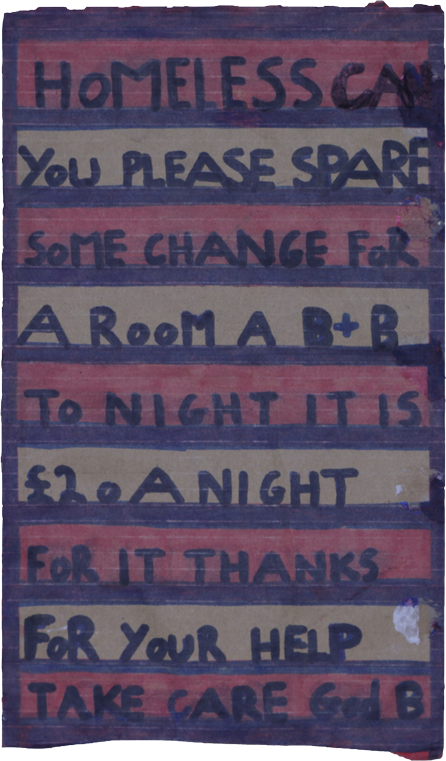 HOMELESS CAN
YOU PLEASE SPARE
SOME CHANGE FOR
A ROOM A B+B
TO NIGHT IT IS
£20 A NIGHT
FOR IT THANKS
FOR YOUR HELP
TAKE CARE God B